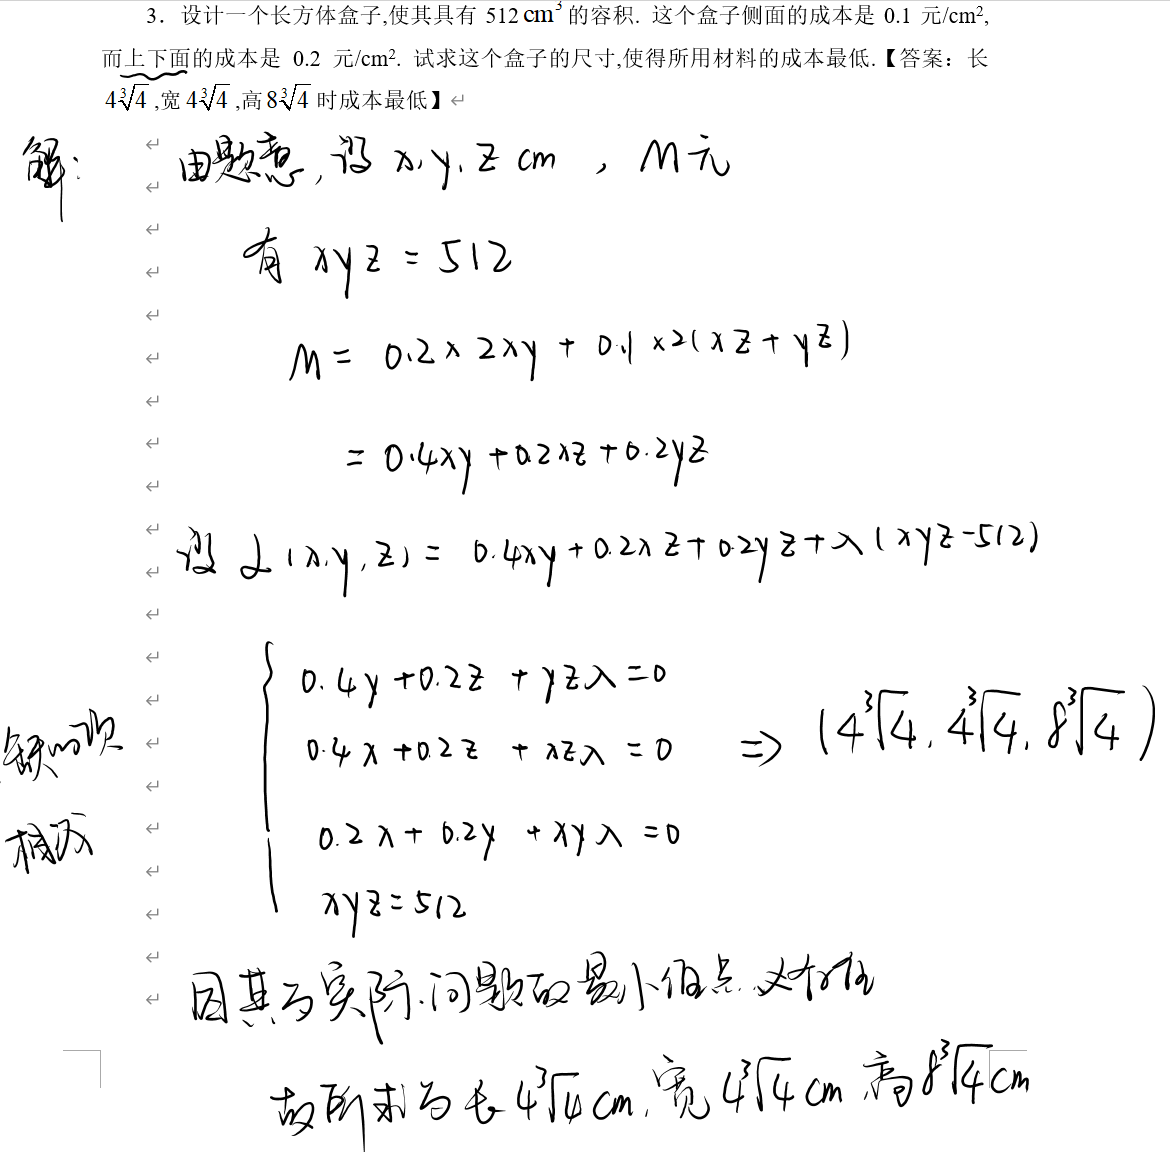 3. 设计一个长方体盒子,使其具有 512 cm³ 的容积. 这个盒子侧面的成本是 0.1 元/cm²,
而上下面的成本是 0.2 元/cm². 试求这个盒子的尺寸,使得所用材料的成本最低.【答案：长
4∛4 ,宽 4∛4 ,高 8∛4 时成本最低】
解:
由题意, 设 x, y, z cm , M元
有 xyz = 512
M = 0.2 × 2xy + 0.1 × 2(xz + yz)
= 0.4xy + 0.2xz + 0.2yz
设 L(x, y, z) = 0.4xy + 0.2xz + 0.2yz + λ(xyz - 512)
0.4y + 0.2z + yzλ = 0
0.4x + 0.2z + xzλ = 0 ⇒ (4∛4, 4∛4, 8∛4)
缺的项
0.2x + 0.2y + xyλ = 0
相
xyz = 512
因其为实际问题故最小值点必存在
故所求为长 4∛4 cm, 宽 4∛4 cm, 高 8∛4 cm